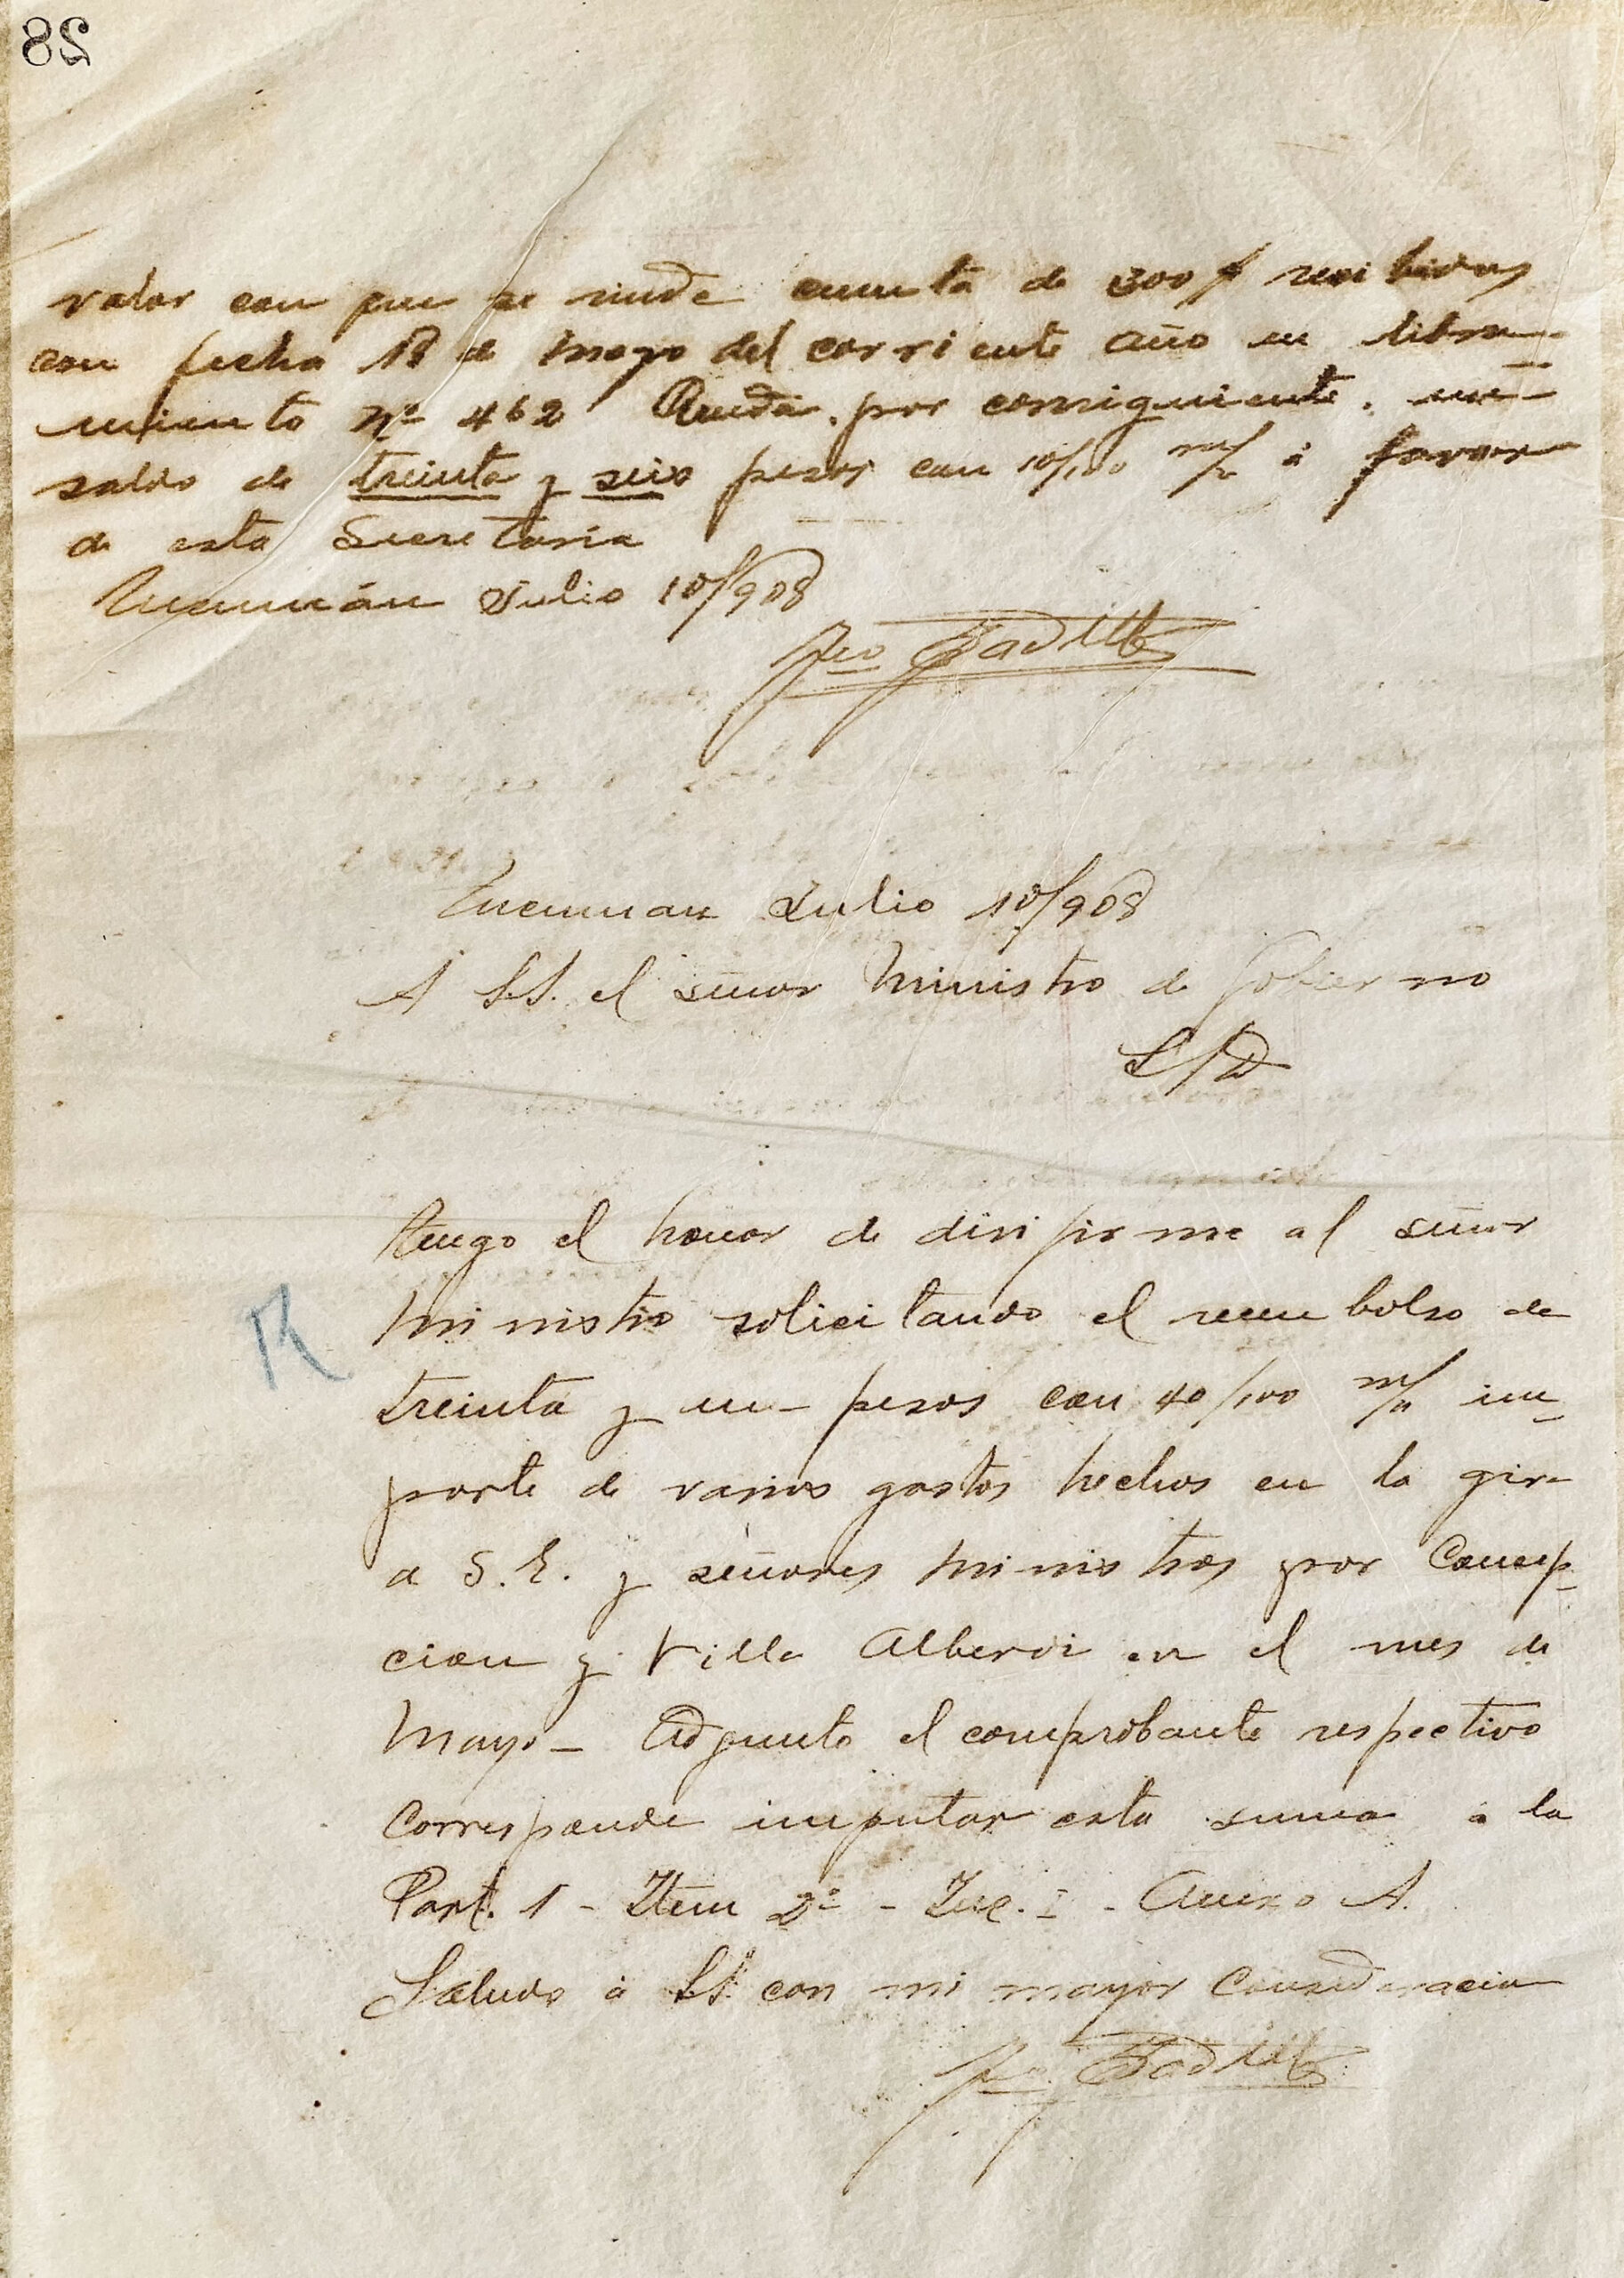 28
valor con que se rinde cuenta de 300 $ recibidos
con fecha 18 de Mayo del corriente año en libra-
miento Nº 462 Queda, por consiguiente, un
saldo de treinta y seis pesos con 10/100 m/n á favor
de esta Secretaría
Tucumán Julio 10/908
Padilla
Tucuman Julio 10/908
A S.S. el señor Ministro de Gobierno
S/D
Tengo el honor de dirijirme al señor
Ministro solicitando el reembolso de
treinta y un pesos con 40/100 m/n im-
porte de varios gastos hechos en la gira
a S.E. y señores Ministros por Concep-
cion y Villa Alberdi en el mes de
Mayo- Adjunto el comprobante respectivo
Corresponde imputar esta suma á la
Part. 1 - Item 2º - Inc. I - Anexo A.
Saludo á S.S. con mi mayor consideracion
Padilla